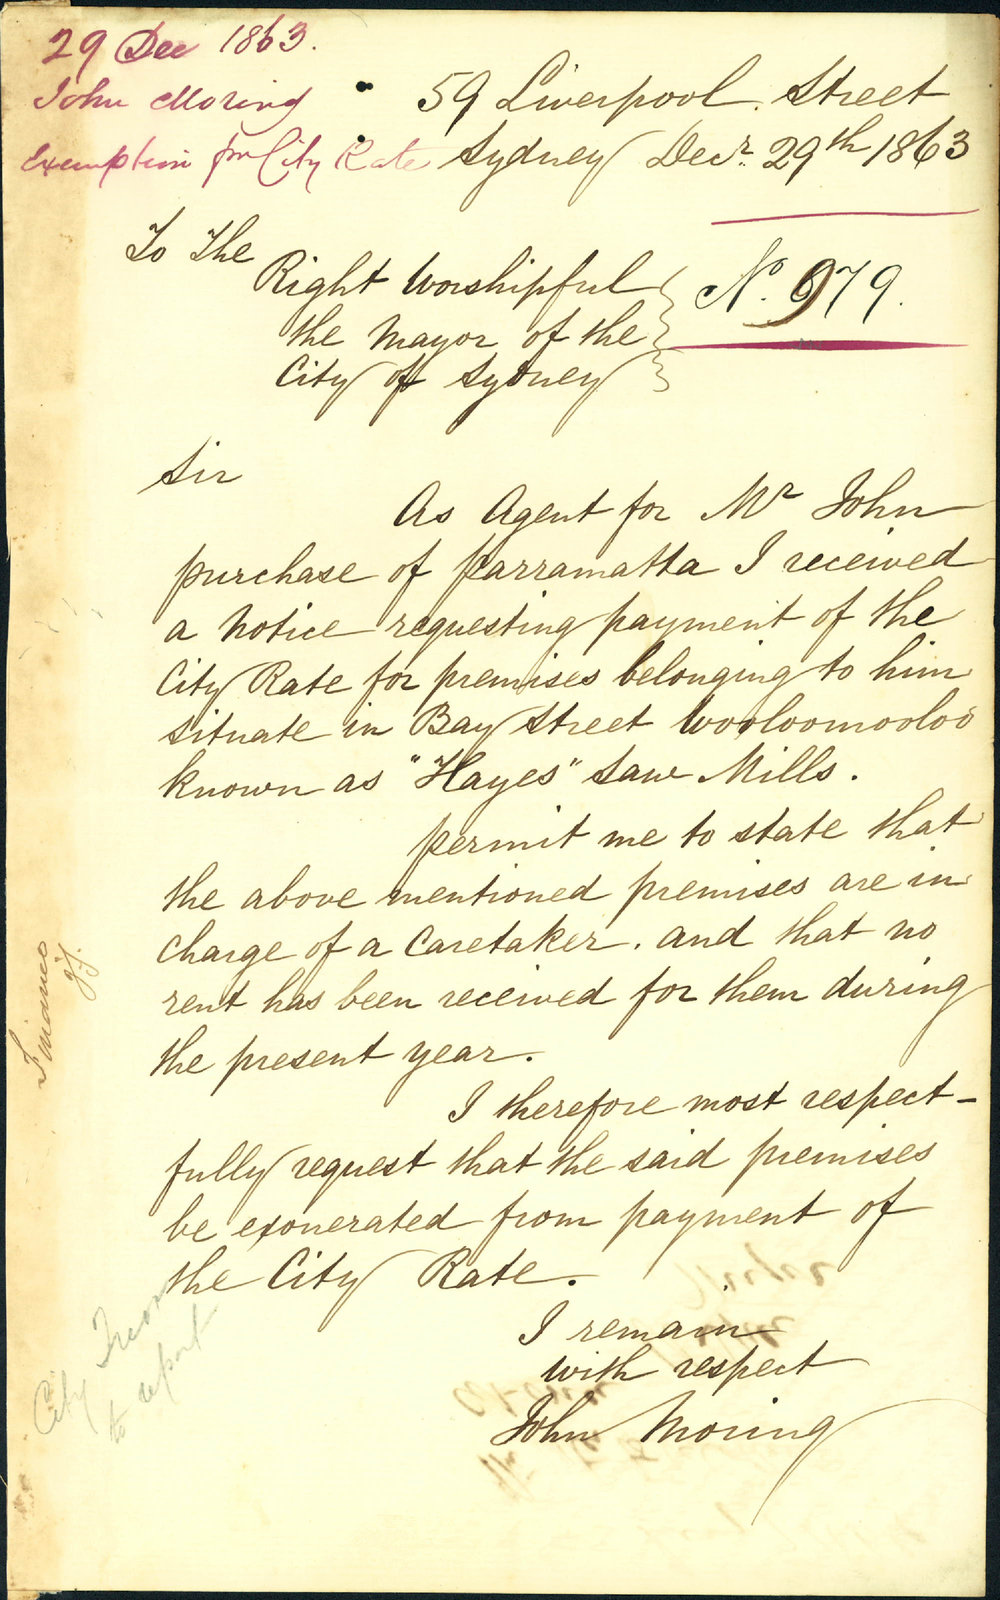 29 Dec 1863.
John Moring
Exemption fm City Rate
59 Liverpool Street
Sydney Decr. 29th 1863
To The
Right Worshipful
the Mayor of the
City of Sydney
No. 979.
Sir
As Agent for Mr John
purchase of Parramatta I received
a Notice requesting payment of the
City Rate for premises belonging to him
situate in Bay Street Wooloomooloo
known as "Hayes" Saw Mills.
permit me to state that
the above mentioned premises are in
charge of a Caretaker. and that no
rent has been received for them during
the present year.
I therefore most respect-
fully request that the said premises
be exonerated from payment of
the City Rate.
I remain
with respect
John Moring
Finance
City
to report